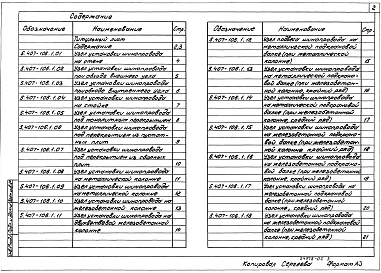 Содержание
2
Обозначение Наименование Стр.
Титульный лист
Содержание 2,3
5.407-108.1.01 Узел установки шинопровода
на стене 4
5.407-108.1.02 Узел установки шинопровода
при обходе внешнего угла 5
5.407-108.1.03 Узел установки шинопровода
при обходе внутреннего угла 6
5.407-108.1.04 Узел установки шинопровода
на стойке 7
5.407-108.1.05 Узел установки шинопровода
под покрытием 8
5.407-108.1.06 Узел установки шинопровода
под перекрытием из пустотных
плит 9
5.407-108.1.07 Узел установки шинопровода
под перекрытием из сборных
плит 10
5.407-108.1.08 Узел установки шинопровода
на металлической колонне 11
5.407-108.1.09 Узел установки шинопровода
на металлической колонне 12
5.407-108.1.10 Узел установки шинопровода на
железобетонной колонне 13
5.407-108.1.11 Узел установки шинопровода на
железобетонной
колонне 14
Обозначение Наименование Стр.
5.407-108.1.12 Узел подвеса шинопровода на
металлической подкрановой
балке (при металлической
колонне) 15
5.407-108.1.13 Узел установки шинопровода
на металлической подкрановой
балке (при металлической
колонне, крайний ряд) 16
5.407-108.1.14 Узел установки шинопровода
на металлической подкрановой
балке (при металлической
колонне, средний ряд) 17
5.407-108.1.15 Узел установки шинопровода
на железобетонной подкрановой
балке (при металлической
колонне, крайний ряд) 18
5.407-108.1.16 Узел установки шинопровода
на железобетонной подкрановой
балке (при железобетонной
колонне, крайний ряд) 19
5.407-108.1.17 Узел установки шинопровода на
железобетонной подкрановой
балке (при металлической
колонне, средний ряд) 20
5.407-108.1.18 Узел установки шинопровода на
железобетонной подкрановой
балке (при железобетонной
колонне, средний ряд) 21
Копировал Сергеева Формат А3